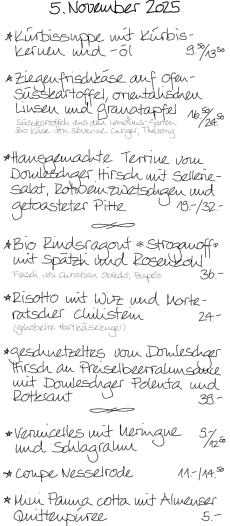 5. November 2025
* Kürbissuppe mit Kürbis-
kernen und -öl 9.50/13.50
* Ziegenfrischkäse auf Ofen-
Süsskartoffel, orientalischen
Linsen und Granatapfel 16.50/24.50
Süsskartoffeln aus dem Landhus-Garten
Bio Käse von Severine Curiger,
* Hausgemachte Terrine vom
Domleschger Hirsch mit Sellerie-
salat, Rotweinzwetschgen und
getoasteter Pitte 19.-/32.-
* Bio Rindsragout «Stroganoff»
mit Spätzli und Rosenkohl
Fleisch von Christian Obrecht, 36.-
* Risotto mit Wirz und Morte-
ratscher Chilistein 24.-
(gehobelte Hartkäsekugel)
* geschnetzeltes vom Domleschger
Hirsch an Preiselbeerrahmsauce
mit Domleschger Polenta und
Rotkraut 38.-
* Vermicelles mit Meringue
und Schlagrahm 9.-/12.50
* Coupe Nesselrode 11.-/14.50
* Mini Panna cotta mit Almenser
Quittenpüree 5.-